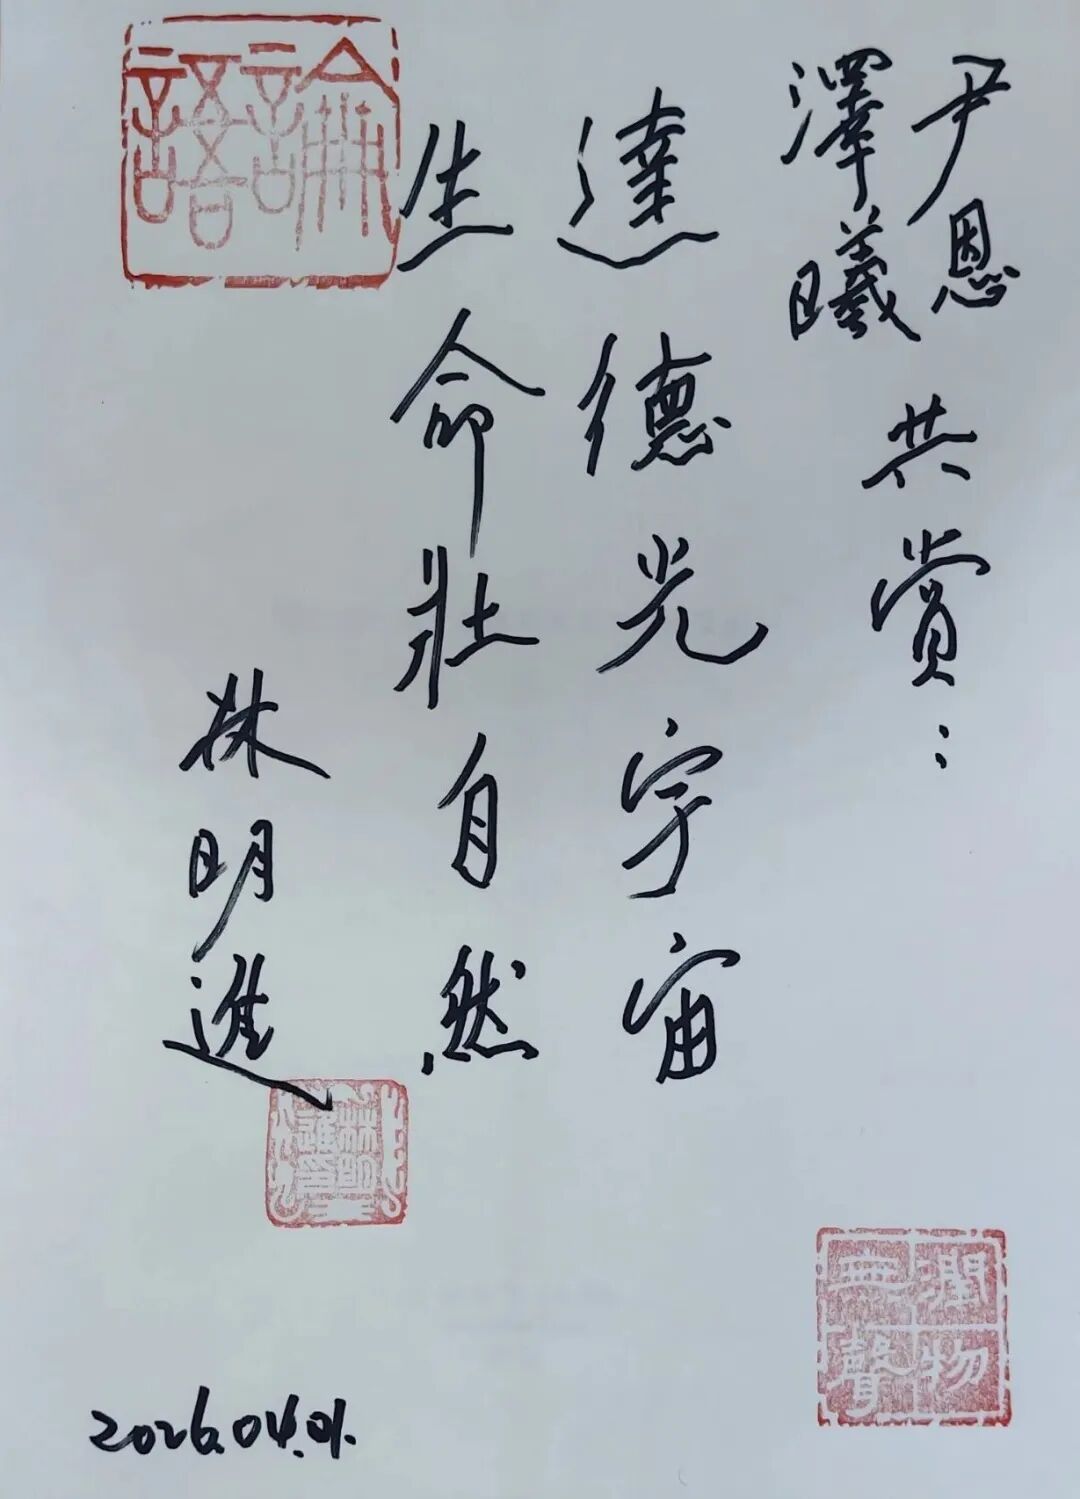 尹恩
澤曦
共賞：
達德光宇宙
生命壯自然
林明進
2026.04.01.
論語
林明進印
潤物無聲